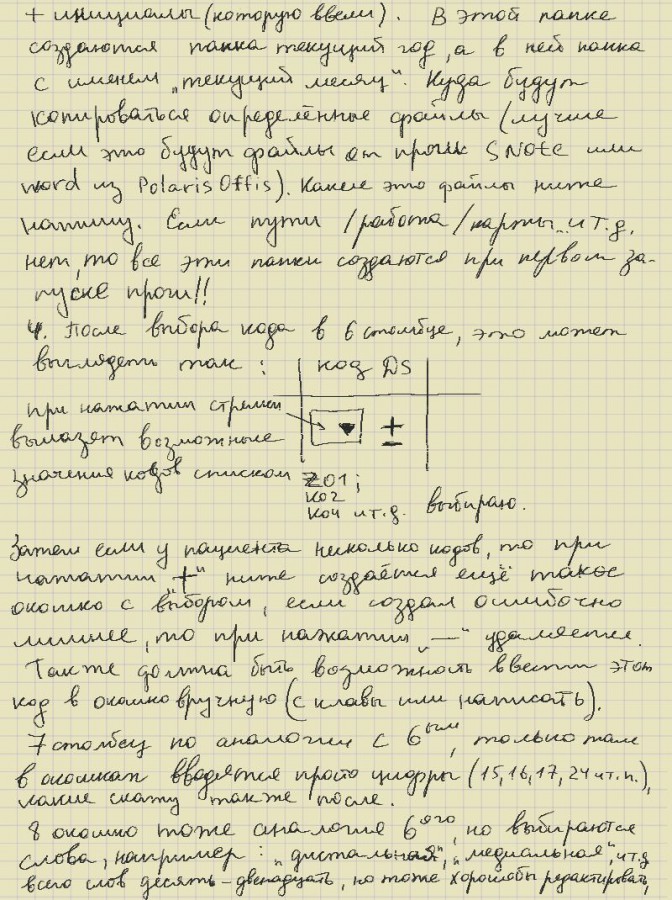 + инициалы (которую ввели). В этой папке
создаются папка текущий год, а в ней папка
с именем "текущий месяц". Куда будут
копироваться определённые файлы (лучше
если это будут файлы от проги S Note или
word из Polaris Offis). Какие это файлы ниже
напишу. Если пути /работа/карты и т.д.
нет, то все эти папки создаются при первом за-
пуске проги!!
4. После выбора кода в 6 столбце, это может
выглядеть так:
код DS
при нажатии стрелки
вылазят возможные
значения кодов списком
+
−
Z01;
К02
К04 и т.д. выбираю.
Затем если у пациента несколько кодов, то при
нажатии "+" ниже создаётся ещё такое
окошко с выбором, если создал ошибочно
лишнее, то при нажатии "—" удаляется.
Также должна быть возможность ввести этот
код в окошко вручную (с клавы или написать).
7 столбец по аналогии с 6ым, только там
в окошках вводятся просто цифры (15,16,17,24 и т.п.),
какие скажу также после.
8 окошко тоже аналогия 6ого, но выбираются
слова, например: "дистальная", "медиальная", и т.д
всего слов десять-двенадцать, но тоже хорошобы редактировать,